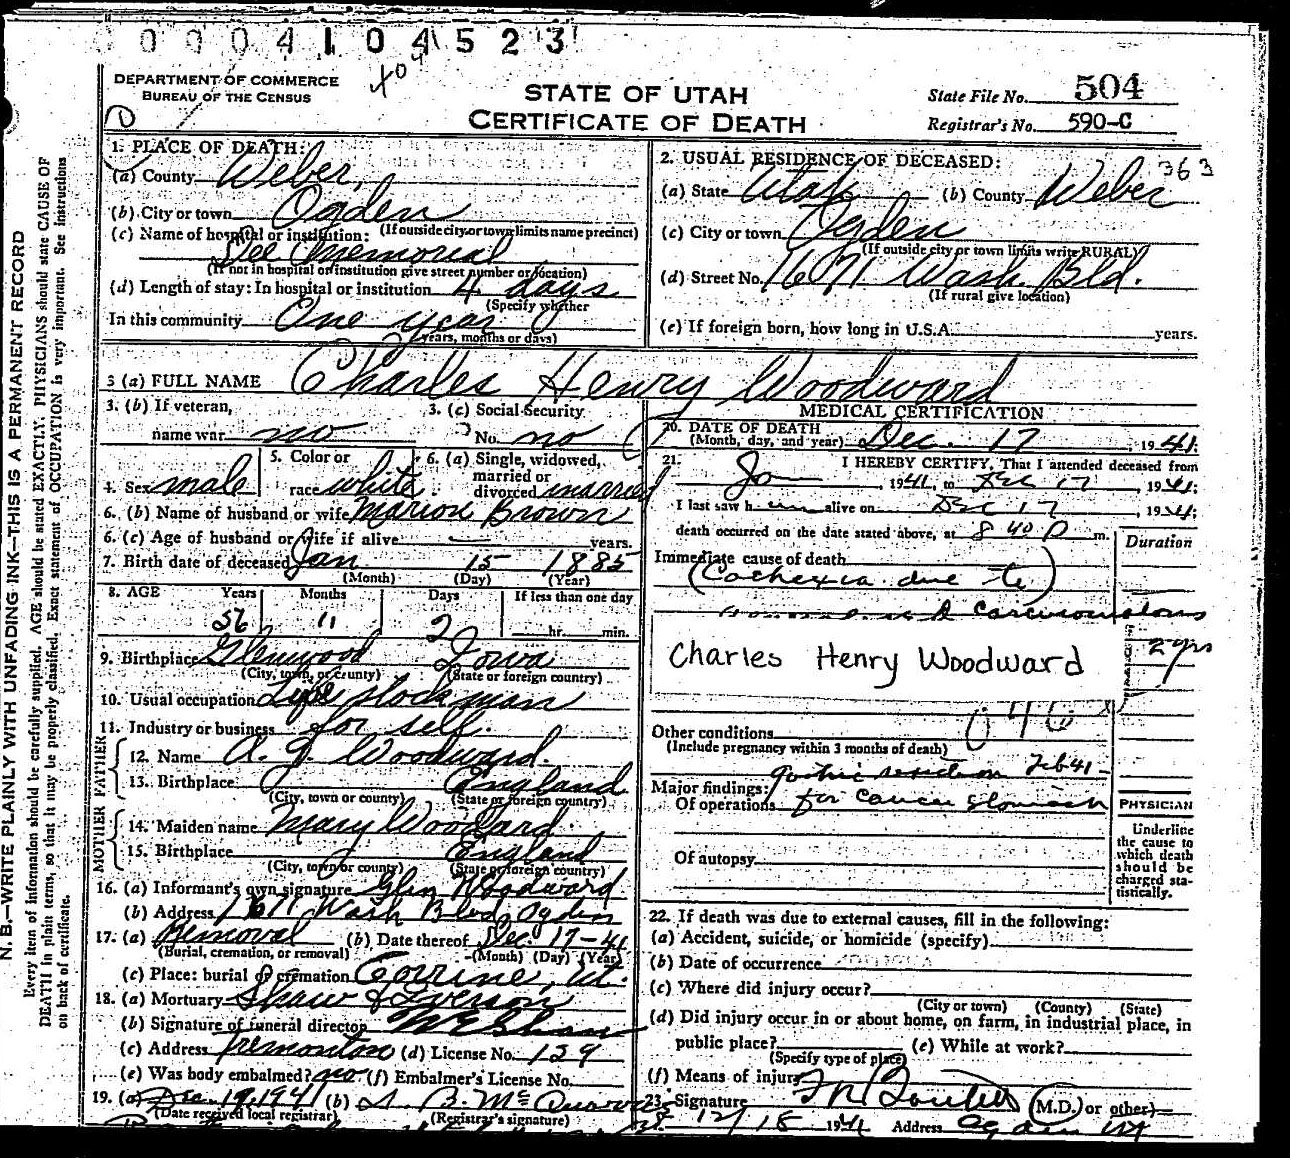 0004104523
DEPARTMENT OF COMMERCE
BUREAU OF THE CENSUS
STATE OF UTAH
CERTIFICATE OF DEATH
State File No. 504
Registrar's No. 590-C
N. B.—WRITE PLAINLY WITH UNFADING INK—THIS IS A PERMANENT RECORD
Every item of information should be carefully supplied. AGE should be stated EXACTLY. PHYSICIANS should state CAUSE OF
DEATH in plain terms, so that it may be properly classified. Exact statement of OCCUPATION is very important. See instructions
on back of certificate.
1. PLACE OF DEATH:
(a) County Weber,
(b) City or town Ogden
(If outside city or town limits name precinct)
(c) Name of hospital or institution:
Dee Memorial
(If not in hospital or institution give street number or location)
(d) Length of stay: In hospital or institution 4 days
(Specify whether
In this community One year
years, months or days)
2. USUAL RESIDENCE OF DECEASED: 363
(a) State Utah (b) County Weber
(c) City or town Ogden
(If outside city or town limits write RURAL)
(d) Street No. 1607 Wash. Bld.
(If rural give location)
(e) If foreign born, how long in U.S.A. years.
3 (a) FULL NAME Charles Henry Woodward
3. (b) If veteran,
name war no
3. (c) Social Security
No. no
4. Sex male
5. Color or
race white
6. (a) Single, widowed,
married or
divorced married
6. (b) Name of husband or wife Marion Brown
6. (c) Age of husband or wife if alive — years.
7. Birth date of deceased Jan 15 1885
(Month) (Day) (Year)
8. AGE Years Months Days If less than one day
56 11 2 hr. min.
9. Birthplace Glenwood Iowa
(City, town, or county) (State or foreign country)
10. Usual occupation Live stock man
11. Industry or business for self.
FATHER
12. Name A. J. Woodward.
13. Birthplace England
(City, town or county) (State or foreign country)
MOTHER
14. Maiden name Mary Woodard
15. Birthplace England
(City, town or county) (State or foreign country)
16. (a) Informant's own signature Glen Woodward
(b) Address Wash Blvd, Ogden
17. (a) Removal (b) Date thereof Dec. 17-41
(Burial, cremation, or removal) (Month) (Day) (Year)
(c) Place: burial or cremation Corrine, Ut.
18. (a) Mortuary Shaw & Iverson
(b) Signature of funeral director
(c) Address Tremonton (d) License No. 129
(e) Was body embalmed? no (f) Embalmer's License No.
19. (a) Dec 19, 1941 (b)
(Date received local registrar) (Registrar's signature)
MEDICAL CERTIFICATION
20. DATE OF DEATH
(Month, day, and year) Dec. 17, 1941.
21. I HEREBY CERTIFY, That I attended deceased from
Jan, 1941, to Dec 17, 1941;
I last saw him alive on Dec 17, 1941;
death occurred on the date stated above, at 8 40 P m.
Duration
Immediate cause of death
(Cachexia due to)
Charles Henry Woodward
2 yrs
Other conditions
(Include pregnancy within 3 months of death)
gastric resection Feb 41-
Major findings:
Of operations for cancer stomach
Of autopsy
PHYSICIAN
Underline
the cause to
which death
should be
charged sta-
tistically.
22. If death was due to external causes, fill in the following:
(a) Accident, suicide, or homicide (specify)
(b) Date of occurrence
(c) Where did injury occur?
(City or town) (County) (State)
(d) Did injury occur in or about home, on farm, in industrial place, in
public place? (e) While at work?
(Specify type of place)
(f) Means of injury
23. Signature (M.D.) or other)
12/18 1941 Address Ogden Ut